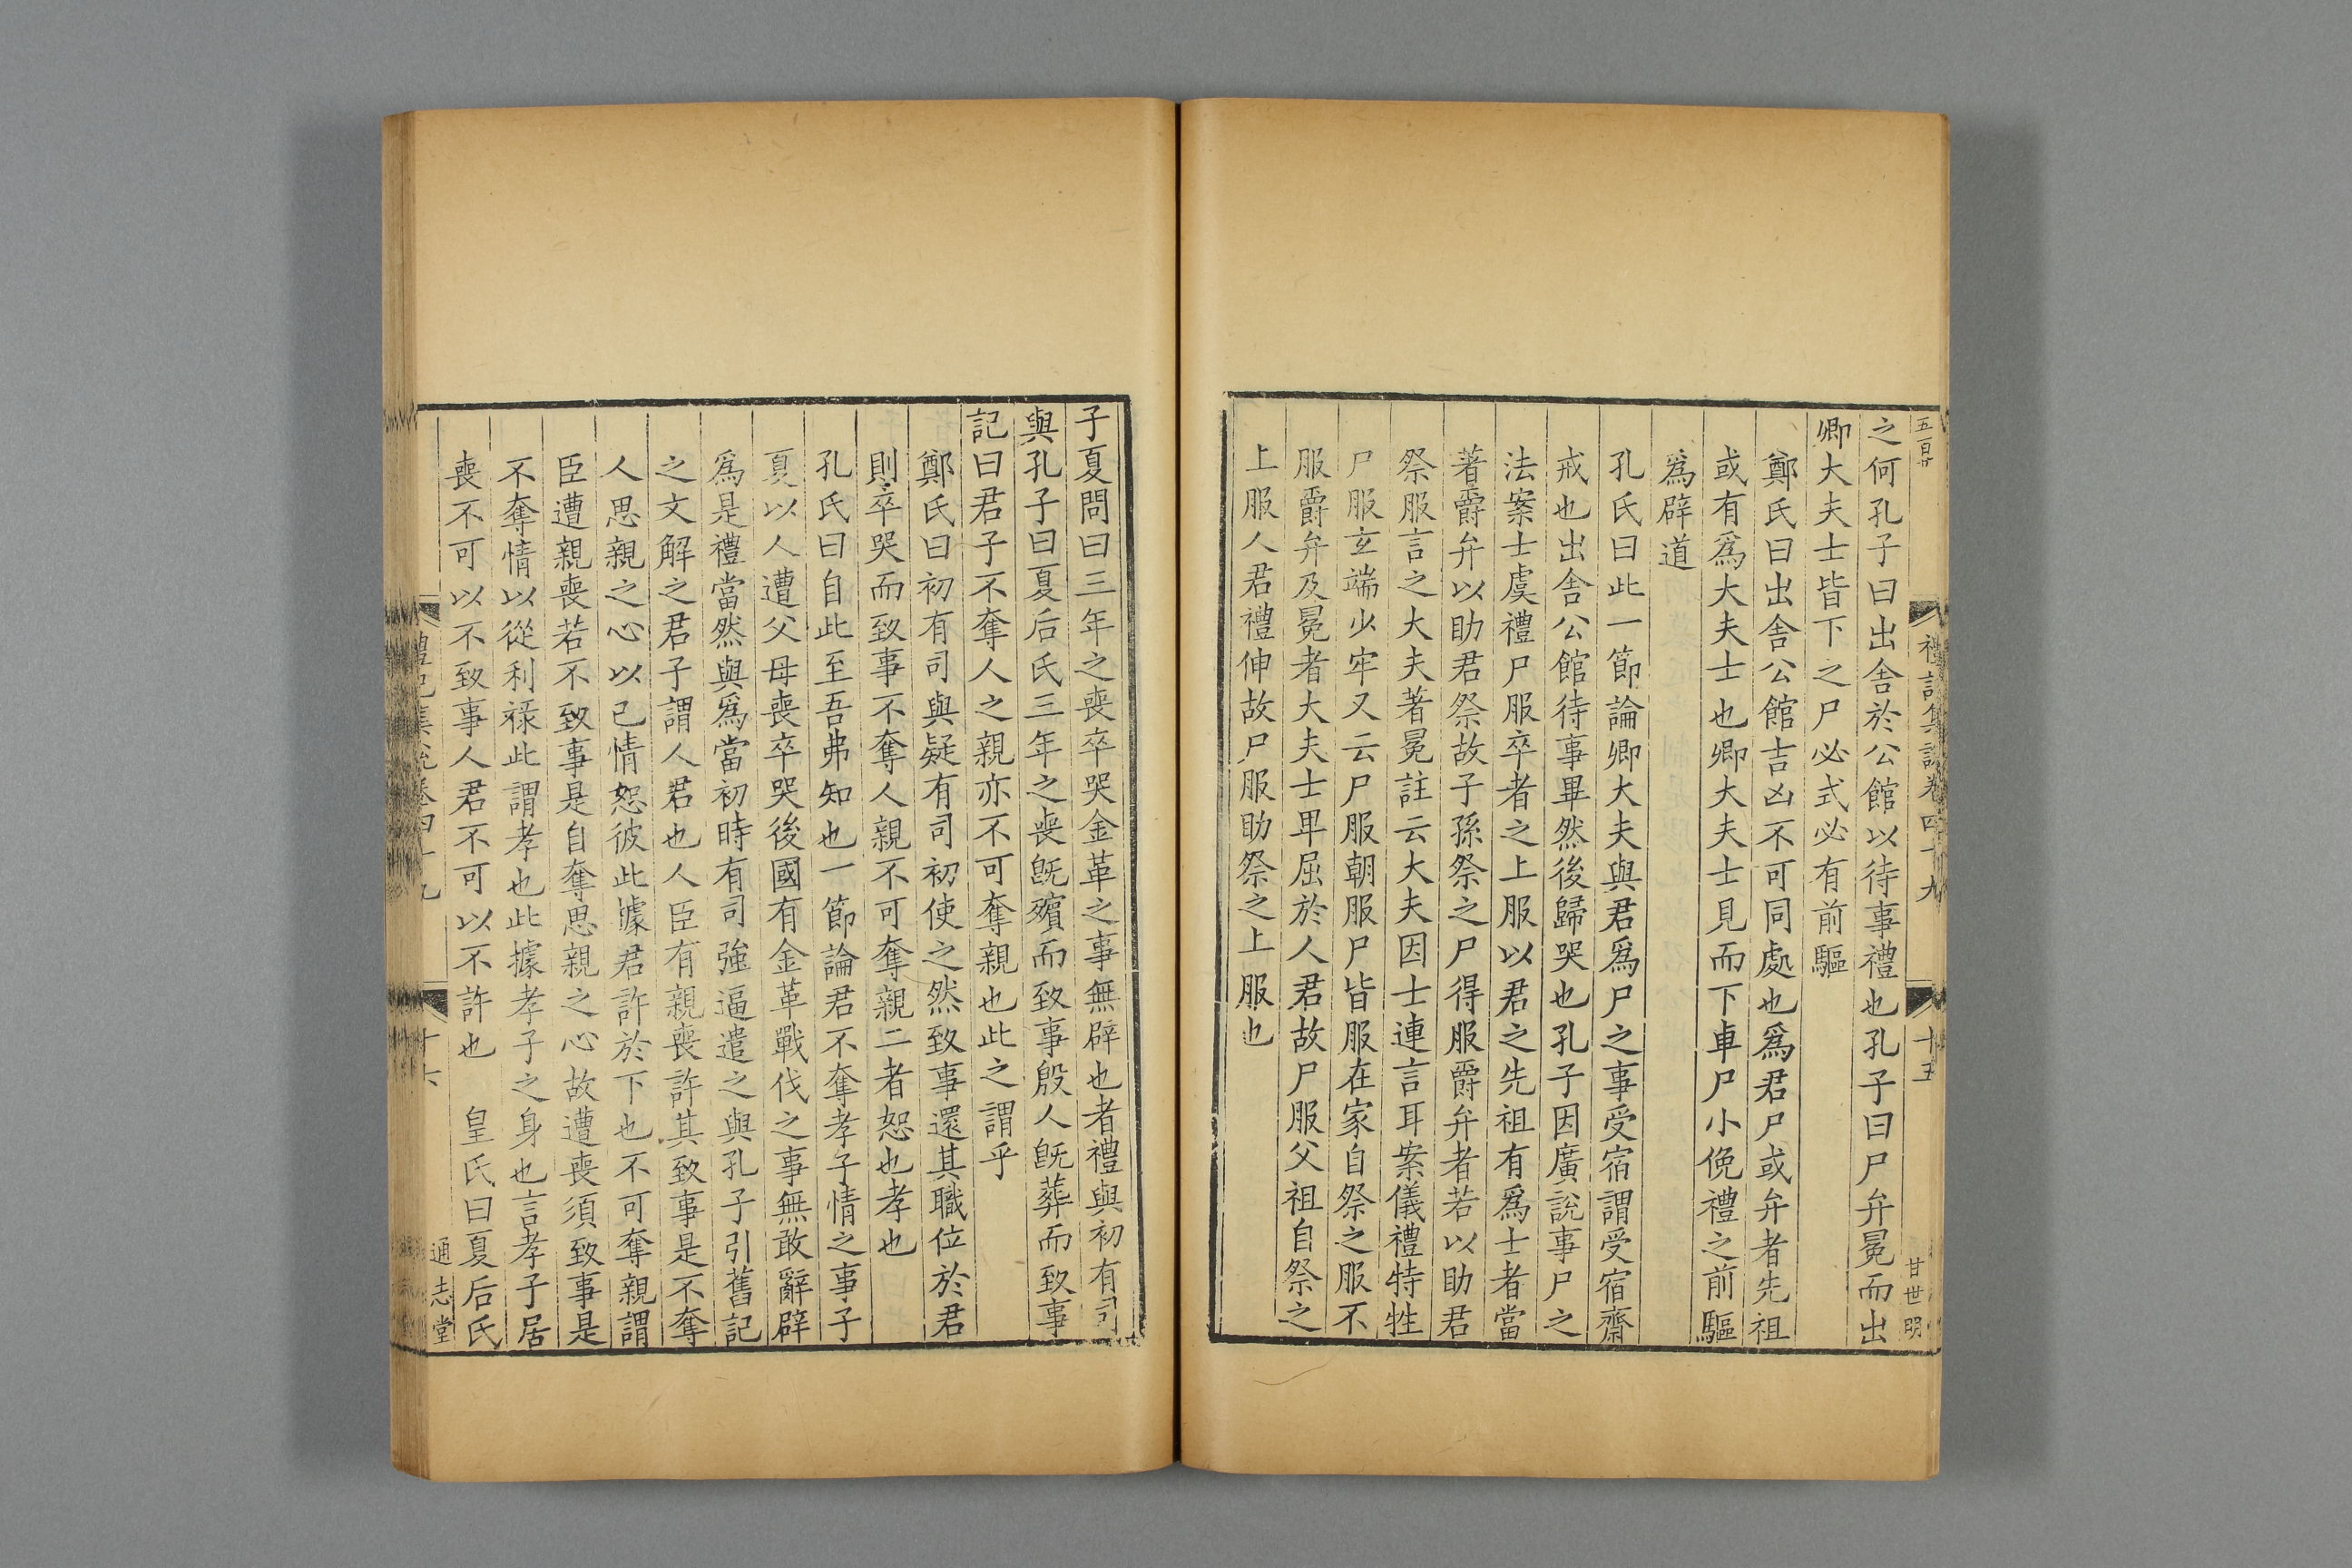 五百廿
禮記集說卷四十九
十五
甘世明
之何孔子曰出舍於公館以待事禮也孔子曰尸弁冕而出
卿大夫士皆下之尸必式必有前驅
鄭氏曰出舍公館吉凶不可同處也爲君尸或弁者先祖
或有爲大夫士也卿大夫士見而下車尸小俛禮之前驅
爲辟道
孔氏曰此一節論卿大夫與君爲尸之事受宿謂受宿齋
戒也出舍公館待事畢然後歸哭也孔子因廣說事尸之
法案士虞禮尸服卒者之上服以君之先祖有爲士者當
著爵弁以助君祭故子孫祭之尸得服爵弁者若以助君
祭服言之大夫著冕註云大夫因士連言耳案儀禮特牲
尸服玄端少牢又云尸服朝服尸皆服在家自祭之服不
服爵弁及冕者大夫士卑屈於人君故尸服父祖自祭之
上服人君禮伸故尸服助祭之上服也
子夏問曰三年之喪卒哭金革之事無辟也者禮與初有司
與孔子曰夏后氏三年之喪旣殯而致事殷人旣葬而致事
記曰君子不奪人之親亦不可奪親也此之謂乎
鄭氏曰初有司與疑有司初使之然致事還其職位於君
則卒哭而致事不奪人親不可奪親二者恕也孝也
孔氏曰自此至吾弗知也一節論君不奪孝子情之事子
夏以人遭父母喪卒哭後國有金革戰伐之事無敢辭辟
爲是禮當然與爲當初時有司強逼遣之與孔子引舊記
之文解之君子謂人君也人臣有親喪許其致事是不奪
人思親之心以己情恕彼此據君許於下也不可奪親謂
臣遭親喪若不致事是自奪思親之心故遭喪須致事是
不奪情以從利祿此謂孝也此據孝子之身也言孝子居
喪不可以不致事人君不可以不許也　皇氏曰夏后氏
禮記集說卷四十九
十六
通志堂